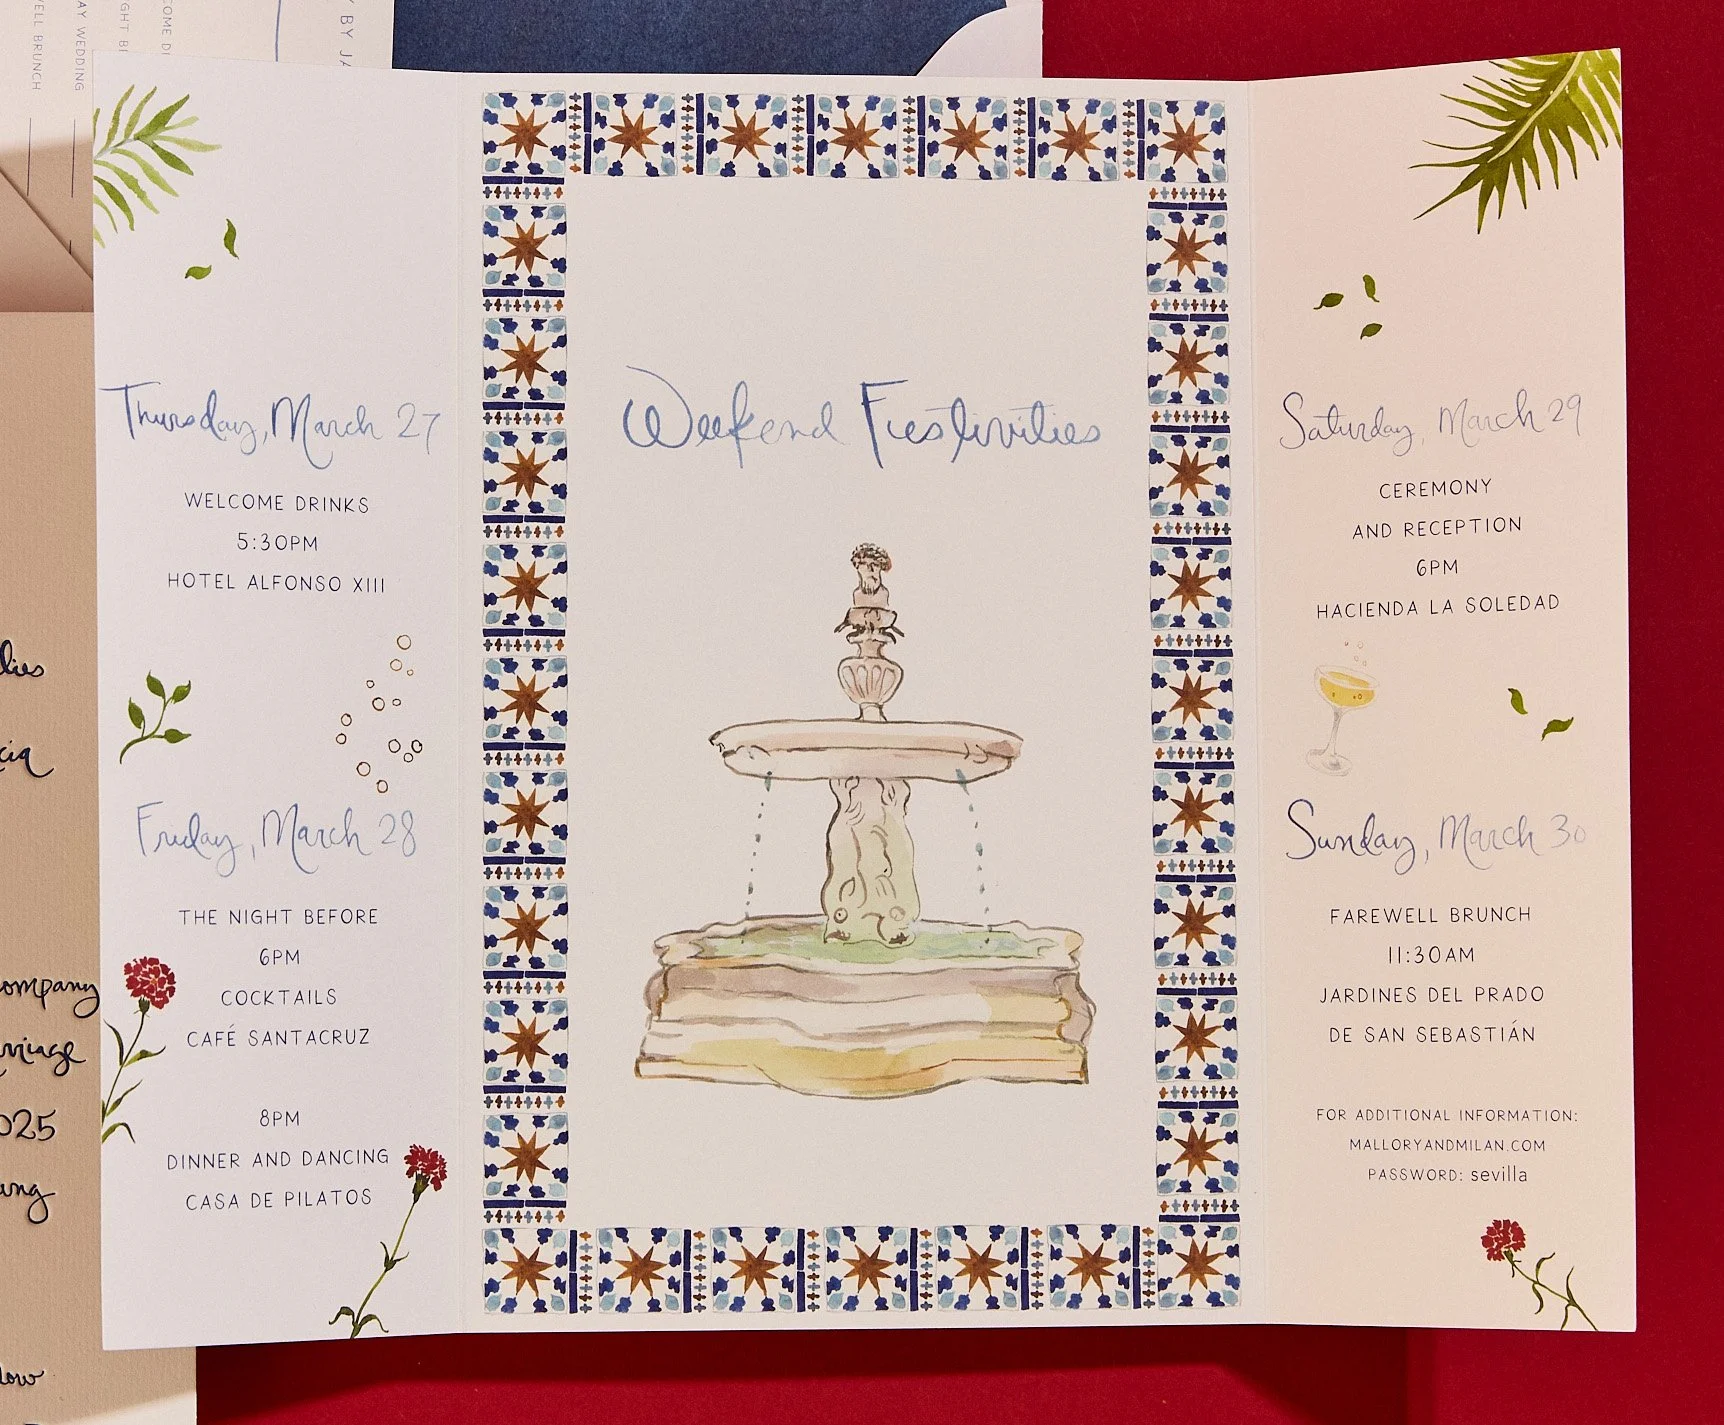 Thursday, March 27
WELCOME DRINKS
5:30PM
HOTEL ALFONSO XIII
Friday, March 28
THE NIGHT BEFORE
6PM
COCKTAILS
CAFÉ SANTACRUZ
8PM
DINNER AND DANCING
CASA DE PILATOS
Weekend Festivities
Saturday, March 29
CEREMONY
AND RECEPTION
6PM
HACIENDA LA SOLEDAD
Sunday, March 30
FAREWELL BRUNCH
11:30AM
JARDINES DEL PRADO
DE SAN SEBASTIÁN
FOR ADDITIONAL INFORMATION:
MALLORYANDMILAN.COM
PASSWORD: sevilla
BRUNCH
WEDDING
BY